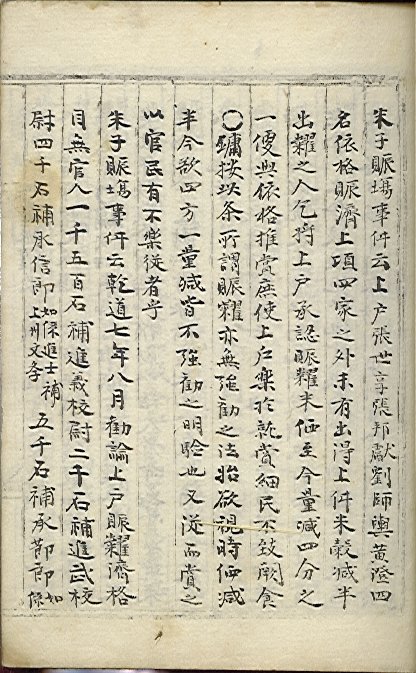 朱子賑場事件云上戶張世亨張邦獻劉師輿黃澄四
名依格賑濟上項四家之外未有出得上件米穀減半
出糶之人乞將上戶承認賑糶米価至今量減四分之
一便與依格推賞庶使上戶樂於就賞細民不致闕食
○鏞按此条所謂賑糶亦無強勸之法抬欲視時価減
半今欲四方一量減皆不強勸之明驗也又從而賞之
以官民有不樂從者乎
朱子賑場事件云乾道七年八月勸諭上戶賑糶濟格
目無官人一千五百石補進義校尉二千石補進武校
尉四千石補承信郎如係進士補上州文學五千石補承節郎如係